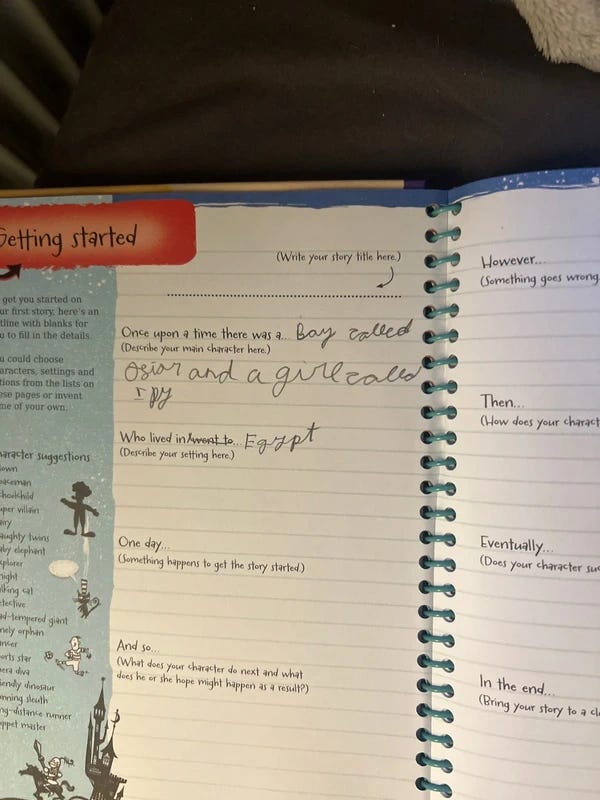 Getting started
got you started on
ur first story, here's an
tline with blanks for
u to fill in the details.
u could choose
aracters, settings and
tions from the lists on
ese pages or invent
me of your own.
haracter suggestions
lown
paceman
choolchild
uper villain
airy
aughty twins
aby elephant
xplorer
night
alking cat
etective
ad-tempered giant
nely orphan
ancer
orts star
era diva
iendly dinosaur
nning sleuth
ng-distance runner
uppet master
(Write your story title here.)
Once upon a time there was a... Boy called
(Describe your main character here.)
Osiar and a girl called
Ipy
Who lived in/went to... Egypt
(Describe your setting here.)
One day...
(Something happens to get the story started.)
And so...
(What does your character do next and what
does he or she hope might happen as a result?)
However...
(Something goes wrong
Then...
(How does your charact
Eventually...
(Does your character suc
In the end...
(Bring your story to a cl